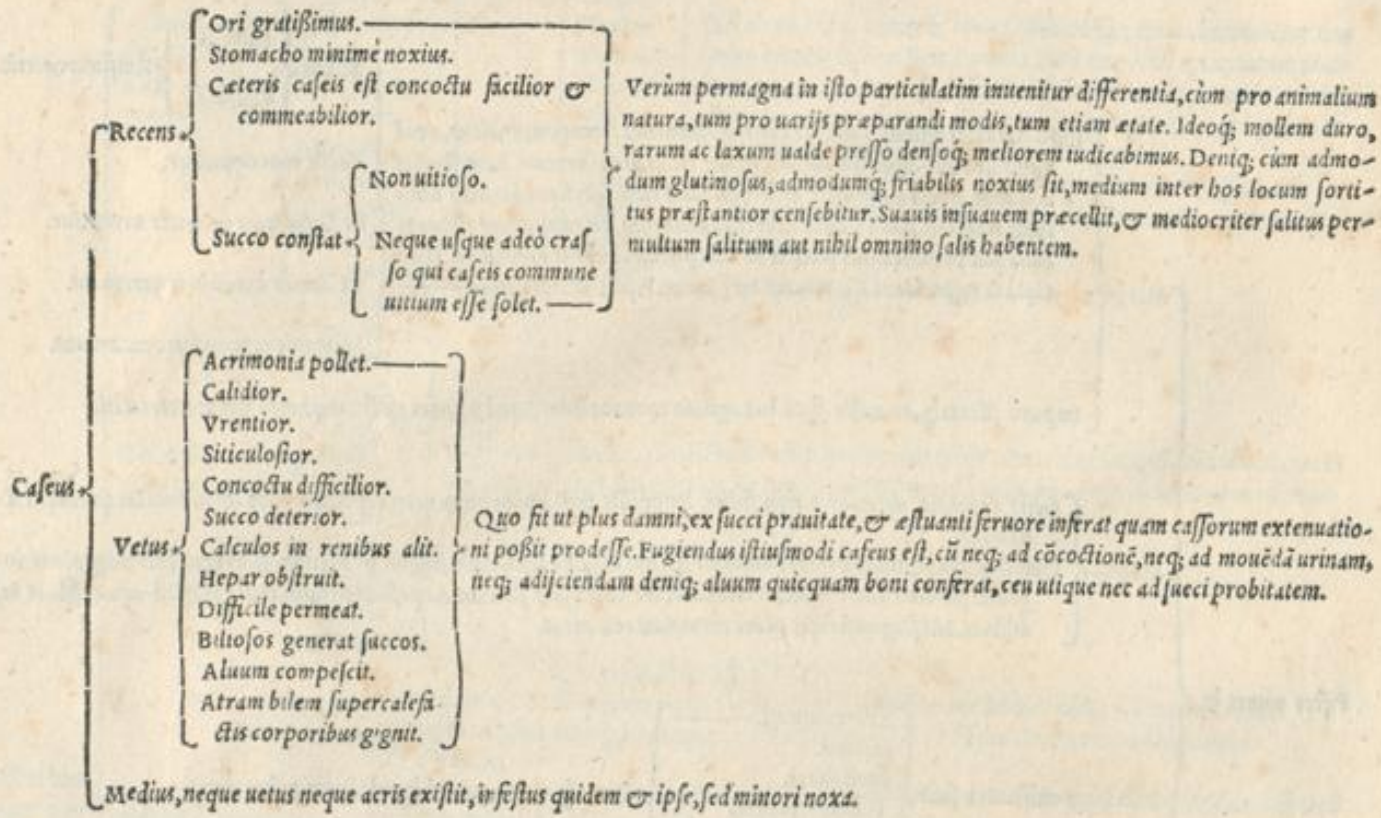 Ori gratißimus.
Stomacho minimè noxius.
Cæteris caſeis eſt concoctu facilior &
commeabilior.
Recens
Succo conſtat
Non uitioſo.
Neque uſque adeò craſ
ſo qui caſeis commune
uitium eſſe ſolet.
Verùm permagna in iſto particulatim inuenitur differentia, cùm pro animalium
natura, tum pro uarijs præparandi modis, tum etiam ætate. Ideoq́; mollem duro,
rarum ac laxum ualde preſſo denſoq́; meliorem iudicabimus. Deniq; cùm admo-
dum glutinoſus, admodumq́; friabilis noxius ſit, medium inter hos locum ſorti-
tus præſtantior cenſebitur. Suauis inſuauem præcellit, & mediocriter ſalitus per-
multum ſalitum aut nihil omnino ſalis habentem.
Caſeus
Vetus
Acrimonia pollet.
Calidior.
Vrentior.
Siticuloſior.
Concoctu difficilior.
Succo deterior.
Calculos in renibus alit.
Hepar obſtruit.
Difficile permeat.
Bilioſos generat ſuccos.
Aluum compeſcit.
Atram bilem ſupercalefa
ctis corporibus gignit.
Quo fit ut plus damni, ex ſucci prauitate, & æſtuanti feruore inferat quam caſſorum extenuatio-
ni poßit prodeſſe. Fugiendus iſtiuſmodi caſeus eſt, cū neq; ad cōcoctionē, neq; ad mouēdā urinam,
neq; adijciendam deniq; aluum quicquam boni conferat, ceu utique nec ad ſucci probitatem.
Medius, neque uetus neque acris exiſtit, infeſtus quidem & ipſe, ſed minori noxa.